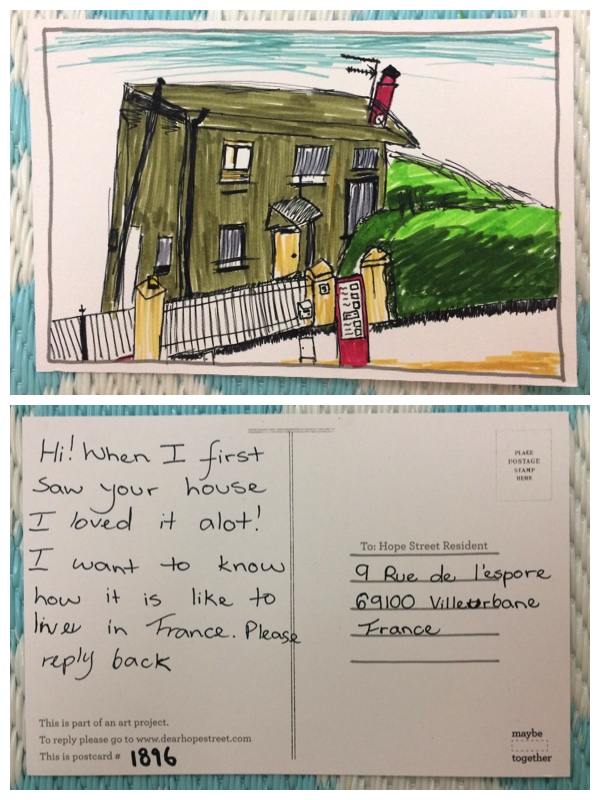 Hi! When I first
saw your house
I loved it alot!
I want to know
how it is like to
liver in France. Please
reply back
This is part of an art project.
To reply please go to www.dearhopestreet.com
This is postcard # 1896
PLACE
POSTAGE
STAMP
HERE
To: Hope Street Resident
9 Rue de l'espore
69100 Villeurbane
France
maybe
together